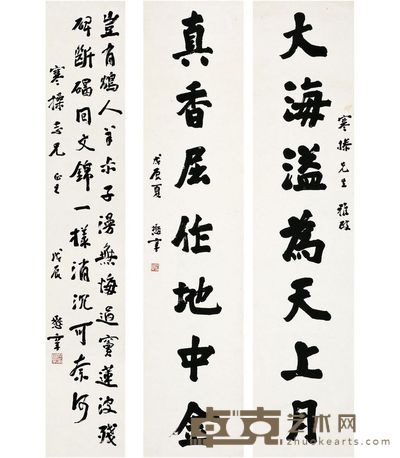 大海溢為天上月
寒操兄生雅政
真香屈作地中金
戊辰夏
懋筆
豈有鴆人羊叔子漫無悔過竇蓮波殘
碑斷碣回文錦一樣消沉可奈何
寒操吾兄正之
戊辰
懋筆
卓克艺术网
zhuokearts.com